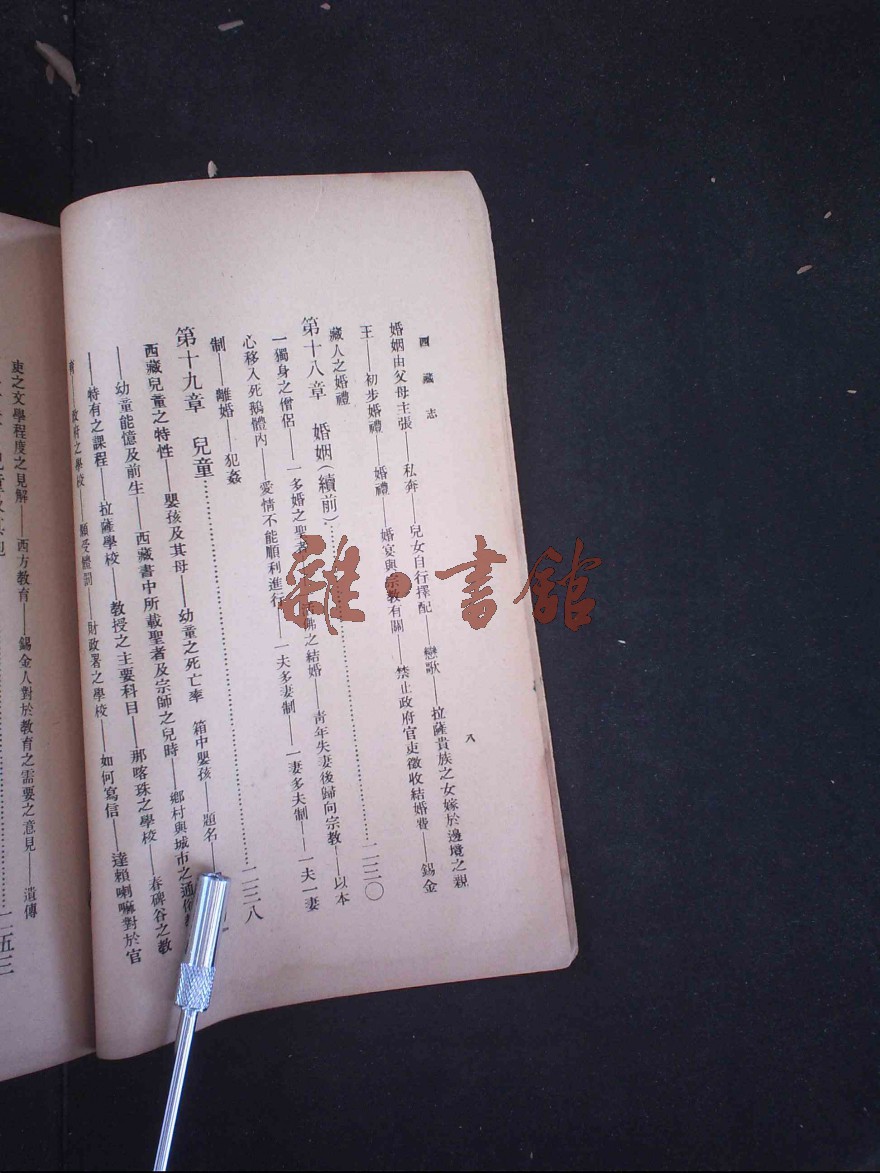 西藏志
八
婚姻由父母主張——私奔——兒女自行擇配——戀歌——拉薩貴族之女嫁於邊境之親
王——初步婚禮——婚禮——婚宴與宗教有關——禁止政府官吏徵收結婚費——錫金
藏人之婚禮
第十八章 婚姻(續前)……二三〇
一獨身之僧侶——一多婚之聖者——活佛之結婚——青年失妻後歸向宗教——以本
心移入死鵝體內——愛情不能順利進行——一夫多妻制——一妻多夫制——一夫一妻
制——離婚——犯姦
第十九章 兒童……二三八
西藏兒童之特性——嬰孩及其母——幼童之死亡率 箱中嬰孩——題名——
——幼童能憶及前生——西藏書中所載聖者及宗師之兒時——鄉村與城市之通俗
——特有之課程——拉薩學校——教授之主要科目——那喀珠之學校——春碑谷之教
育——政府之學校——願受體罰——財政署之學校——如何寫信——達賴喇嘛對於官
吏之文學程度之見解——西方教育——錫金人對於教育之需要之意見——遺傳
二五三
雜·書館